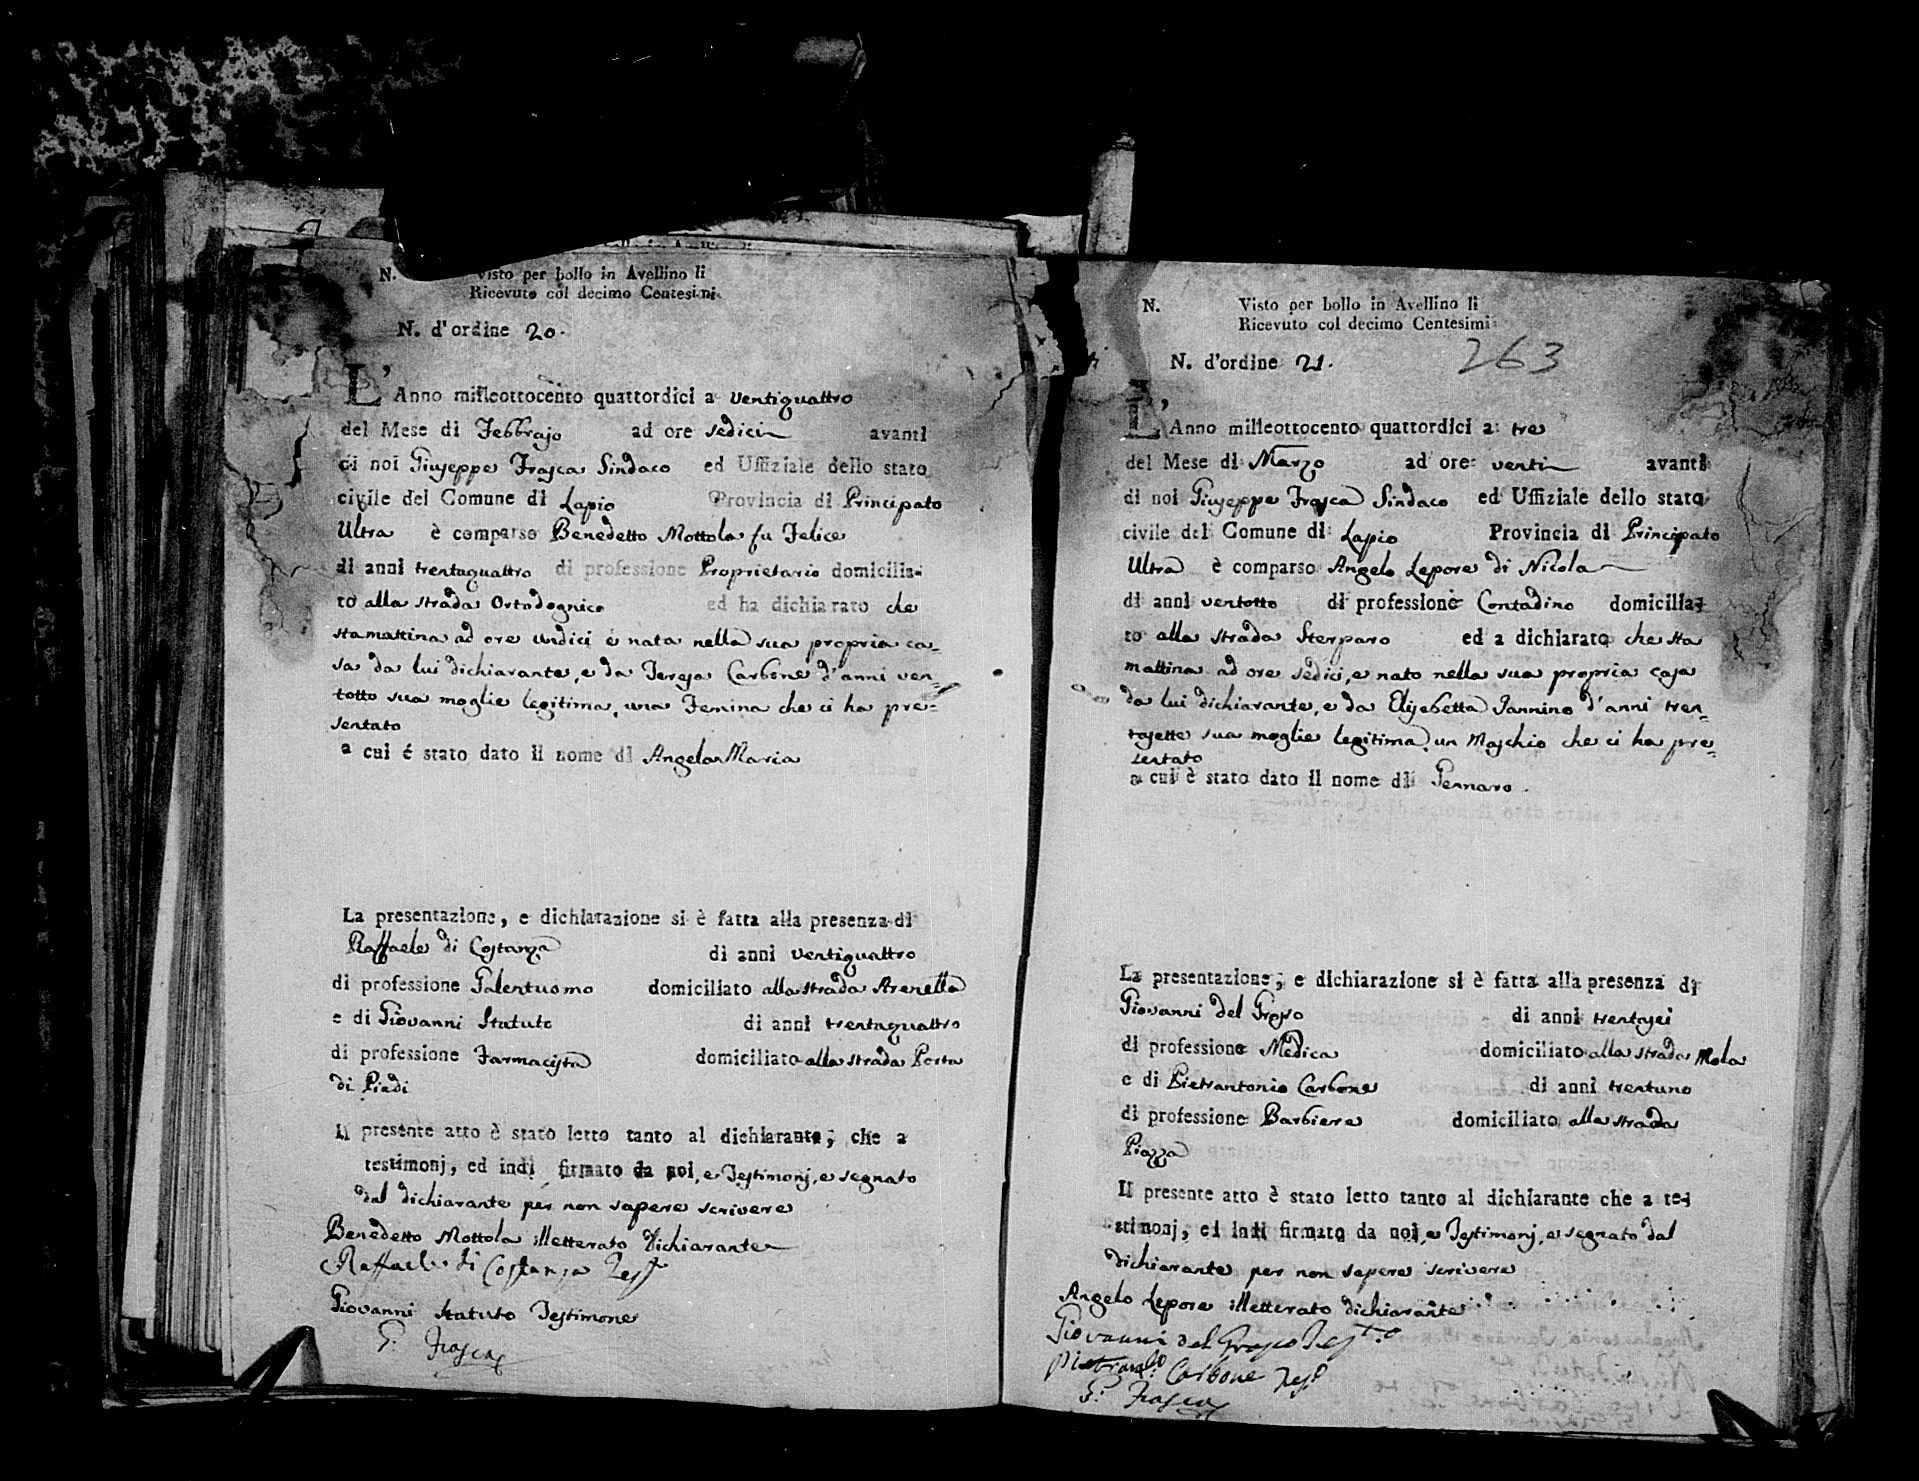 N. Visto per bollo in Avellino li
Ricevuto col decimo Centesimi
N. d'ordine 20.
L'Anno milleottocento quattordici a ventiquattro
del Mese di Febbrajo ad ore sedici avanti
di noi Giuseppe Frasca Sindaco ed Uffiziale dello stato
civile del Comune di Lapio Provincia di Principato
Ultra è comparso Benedetto Mottola fu Felice
di anni trentaquattro di professione Proprietario domicilia-
to alla strada Ortodognico ed ha dichiarato che
stamattina ad ore undici è nata nella sua propria ca-
sa da lui dichiarante, e da Teresa Carbone d'anni ven-
totto sua moglie legitima, una Femina che ci ha pre-
sentato
a cui é stato dato il nome di Angela Maria
La presentazione, e dichiarazione si è fatta alla presenza di
Raffaele di Costanza di anni ventiquattro
di professione Galentuomo domiciliato alla strada Arenella
e di Giovanni Statuto di anni trentaquattro
di professione Farmacista domiciliato alla strada Porta
di Piedi
Il presente atto è stato letto tanto al dichiarante, che a
testimonj, ed indi firmato da noi, e Testimonj, e segnato
dal dichiarante per non sapere scrivere
Benedetto Mottola illetterato Dichiarante
Raffaele di Costanza Test
Giovanni Statuto Testimone
G. Frasca
N. Visto per bollo in Avellino li
Ricevuto col decimo Centesimi
263
N. d'ordine 21.
L'Anno milleottocento quattordici a tre
del Mese di Marzo ad ore venti avanti
di noi Giuseppe Frasca Sindaco ed Uffiziale dello stato
civile del Comune di Lapio Provincia di Principato
Ultra è comparso Angelo Lepore di Nicola
di anni ventotto di professione Contadino domicilia-
to alla strada Sterparo ed a dichiarato che sta
mattina ad ore sedici, è nato nella sua propria casa
da lui dichiarante, e da Elisebetta Jannino d'anni tren-
tasette sua moglie legitima, un Maschio che ci ha pre-
sentato
a cui è stato dato il nome di Gennaro.
La presentazione, e dichiarazione si è fatta alla presenza di
Giovanni del Grosso di anni trentasei
di professione Medica domiciliato alla strada Mola
e di Pietrantonio Carbone di anni trentuno
di professione Barbiere domiciliato alla strada
Piazza
Il presente atto è stato letto tanto al dichiarante che a te-
stimonj, ed indi firmato da noi, e Testimonj, e segnato dal
dichiarante per non sapere scrivere
Angelo Lepore illetterato dichiarante
Giovanni del Grosso Test.o
Pietranto. Carbone Teso
G. Frasca